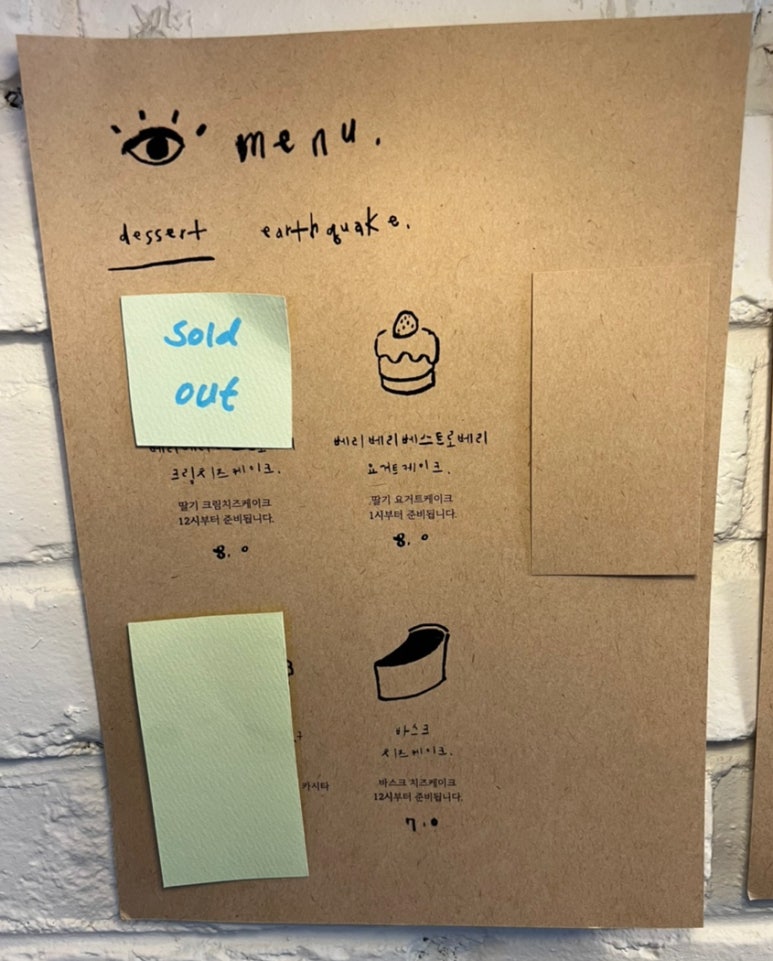 menu.
dessert earthquake.
sold
out
크림치즈케이크.
딸기 크림치즈케이크
12시부터 준비됩니다.
8.0
베리베리베스트로베리
요거트케이크.
딸기 요거트케이크
1시부터 준비됩니다.
8.0
카시타
바스크
치즈케이크.
바스크 치즈케이크
12시부터 준비됩니다.
7.0